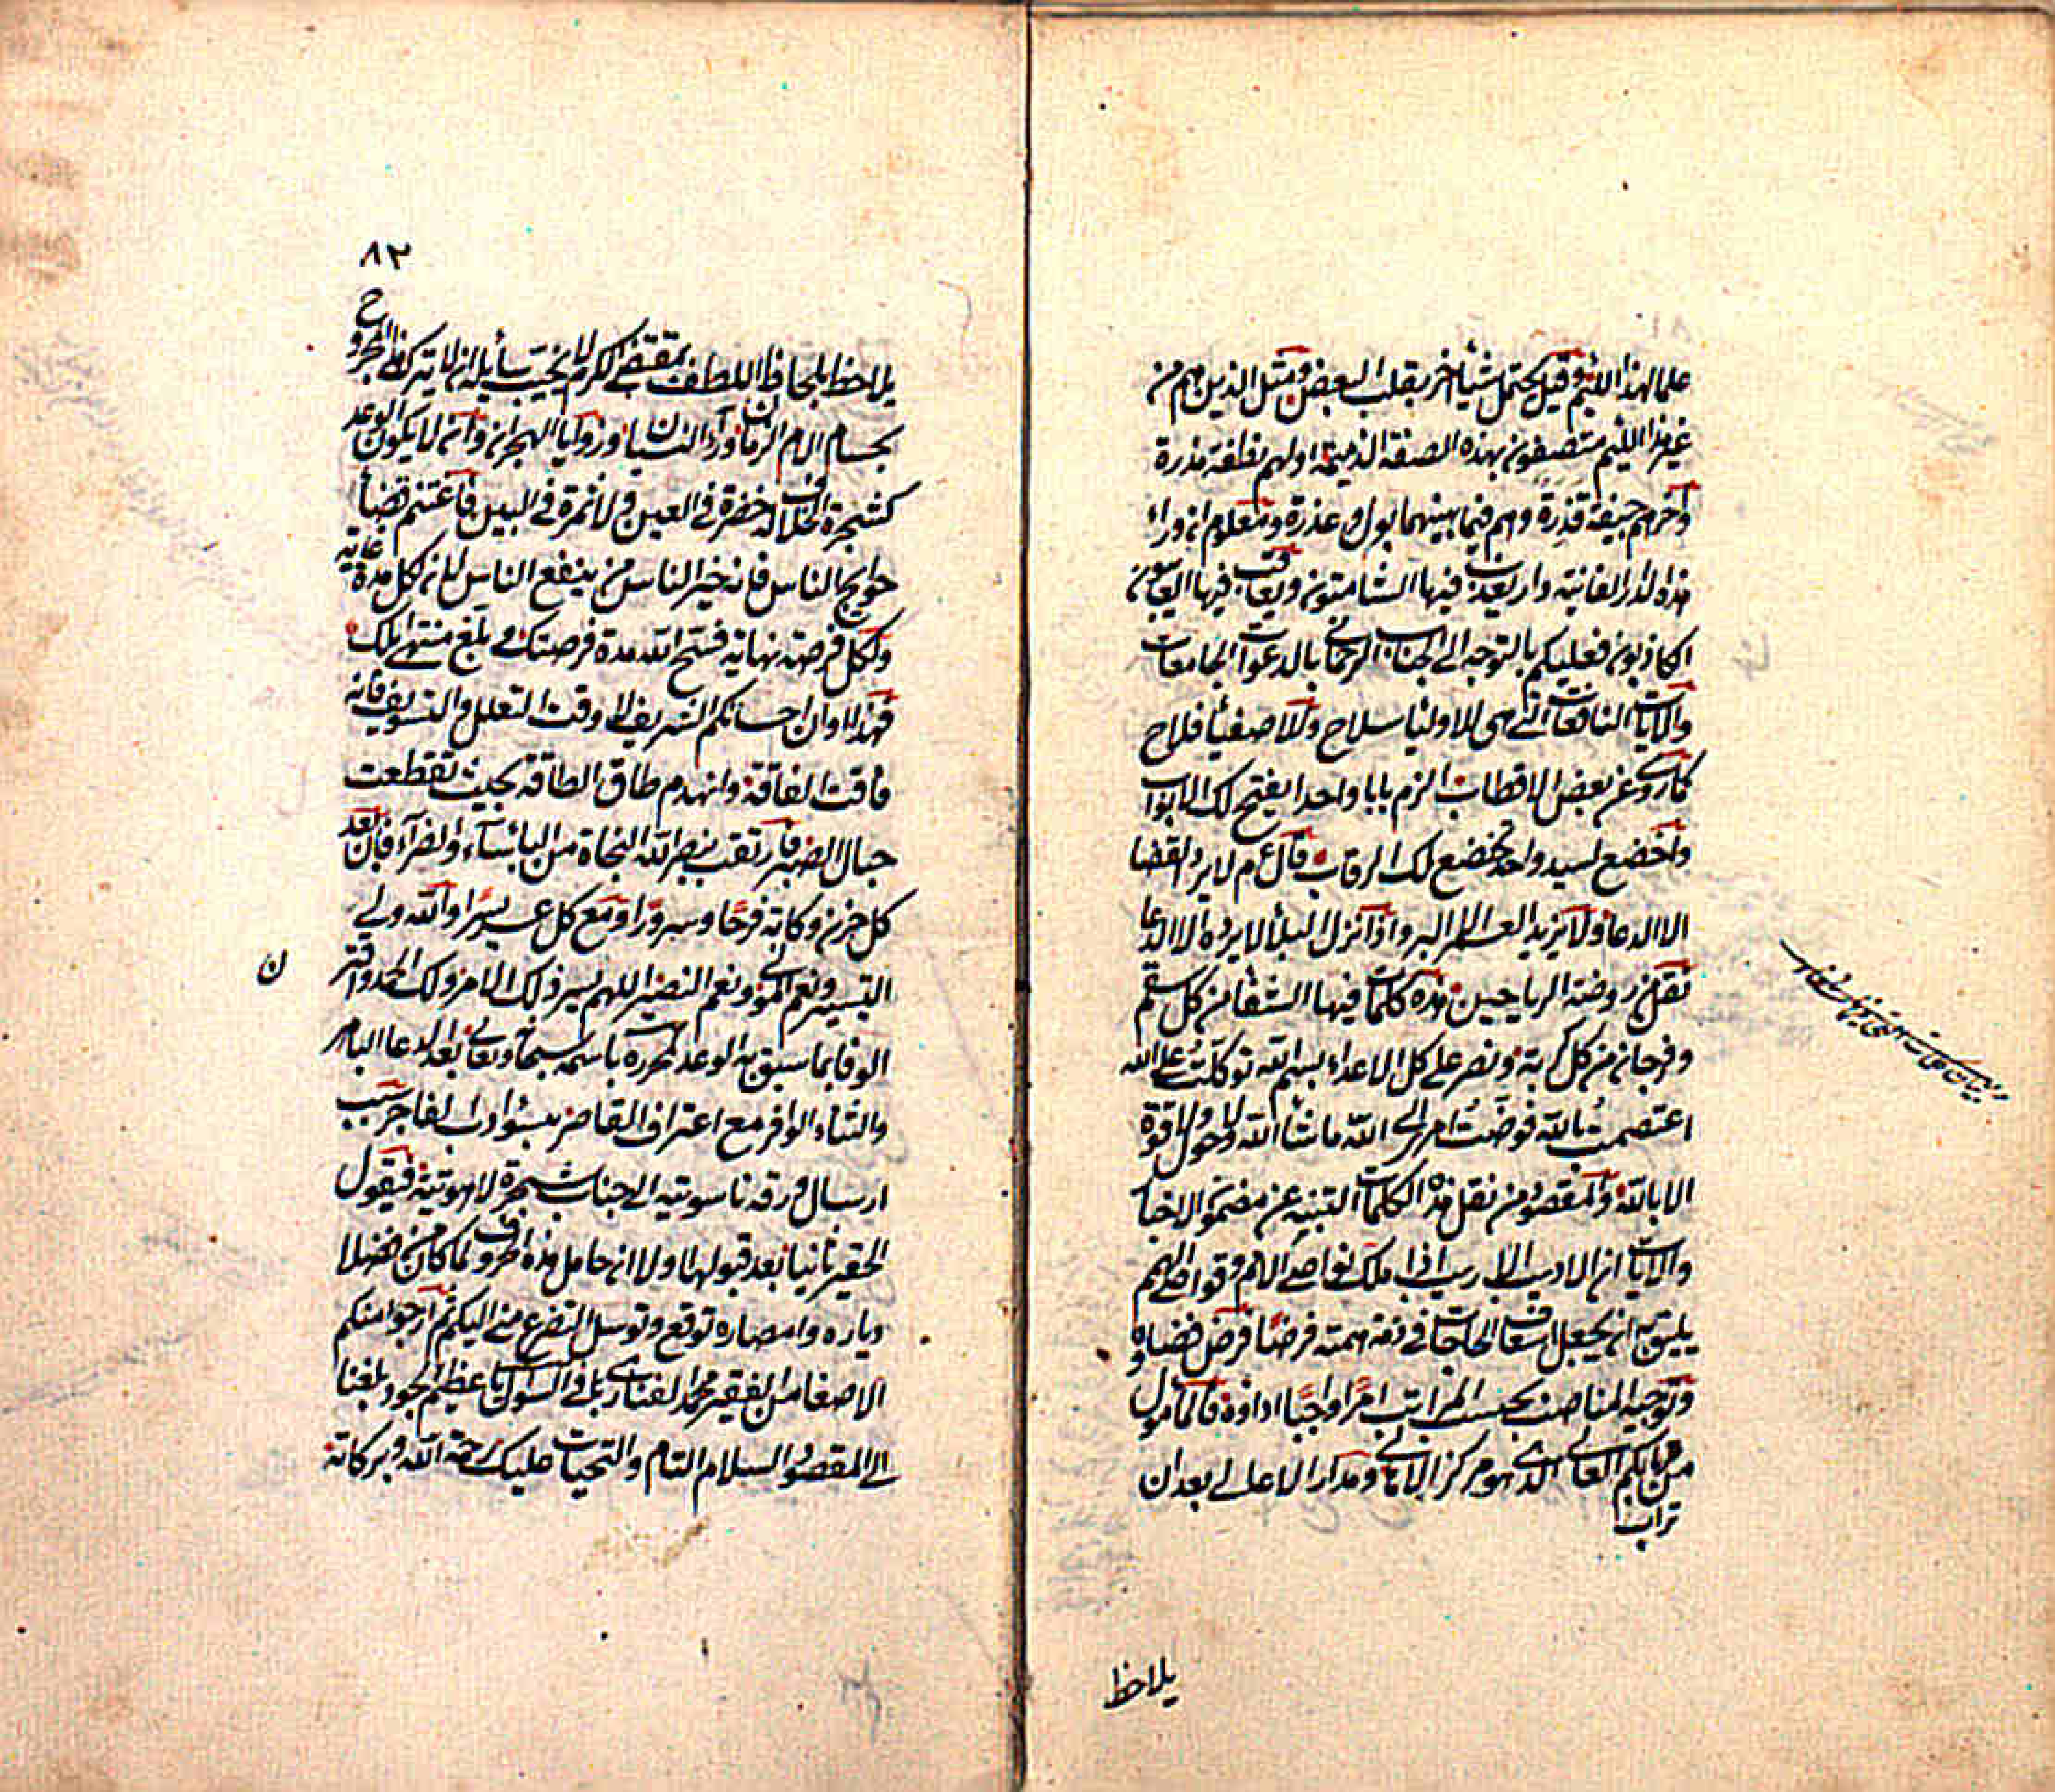 علما لهذا اللئيم وقيل يحتمل شيئا آخر بقلب البعض ومثل الذين هم من
غير هذا اللئيم متصفون بهذه الصفة الذميمة اولهم نطفة مذرة
وآخرهم جيفة قذرة وهم فيما بينهما بول وعذرة ومعلوم ان وراء
هذه الدار الفانية دار يعذب فيها الشامتون ويعاقب فيها
الكاذبون فعليكم بالتوجه الى الجناب الرحماني بالدعوات الجامعات
والآيات النافعات التي هي للاوليا سلاح وللاصفيا فلاح
كما روى عن بعض الاقطاب الزم بابا واحدا يفتح لك الابواب
واخضع لسيد واحد تخضع لك الرقاب قال عم لا يرد القضا
الا الدعا ولا يزيد العمر الا البر واذا نزل البلا لا يرده الا الدعا
نقل من روضة الرياحين هذه كلمات فيها الشفا من كل سقم
وفرجا من كل كربة ونصر على كل الاعداء بسم الله توكلت على الله
اعتصمت بالله فوضت امري الى الله ما شاء الله لا حول ولا قوة
الا بالله والمقصود من نقل هذه الكلمات التنبيه عن مضمون الاخبار
والآيات ان الاديب الاريب اذا ملك نواصي الامم وقواصي الهمم
يليق به ان يجعل اسعاف الحاجات في ذمة همته فرضا فرض قضاؤه
وتوجيه المناصب بحسب المراتب امرا واجبا اداؤه فالمأمول
من تراب بابكم العالي الذي هو مركز الاماني ومدار الاعالي بعد ان
يلاحظ
٨٢
يلاحظ بلحاظ اللطف بمقتضى الكرم لا يخيب سائله ان لا يترك هذا المجروح
بحسام آلام الزمان وراء النسيان وزوايا الهجران وان لا يكون الوعد
كشجرة الخلاف له خضرة في العين ولا ثمرة في البين فاغتنم قضاء
حوايج الناس فانه خير الناس من ينفع الناس لان لكل مدة غاية
ولكل فرصة نهاية فسح الله مدة فرصتك وبلغ منتهى املك
فهذا اوان احسانكم الشريف لا وقت التعلل والتسويف فانه
فاقت الفاقة وانهدم طاق الطاقة بحيث تقطعت
حبال الصبر فارتقب بنصر الله النجاة من البأساء والضراء فان بعد
كل حزن وكابة فرحا وسرورا ومع كل عسر يسرا والله ولي
التيسير ونعم المولى ونعم النصير اللهم يسر ذلك الامر ولك الحمد
الوفا بما سبق به الوعد تحرره باسمه سبحانه وتعالى بعد الدعا
والثناء الوافر مع اعتراف القاصر بسوء ادب الفاجر بسبب
ارسال ورقة ناسوتية الى جناب شجرة لاهوتية فيقول
الحقير ثانيا بعد قبولها اولا ان حامل هذه الحروف لما كان من فضلا
دياره وامصاره توقع وتوسل التضرع مني اليكم ثم ارجوا منكم
الاصغا من الفقير محمد الفناري بلغ السؤل يا عظيم الجود بلغنا
الى المقصود السلام التام والتحيات عليك رحمة الله وبركاته